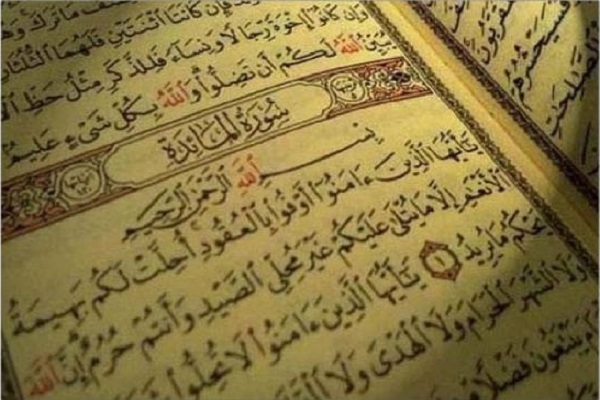 مَا تَرَكَ وَهُوَ
فَإِن كَانَتَا اثْنَتَيْنِ فَلَهُمَا الثُّلُثَانِ
وَإِن كَانُوا إِخْوَةً رِجَالًا وَنِسَاءً فَلِلذَّكَرِ مِثْلُ حَظِّ
يُبَيِّنُ اللَّهُ لَكُمْ أَن تَضِلُّوا وَاللَّهُ بِكُلِّ شَيْءٍ عَلِيمٌ
سُورَةُ الْمَائِدَةِ
بِسْمِ اللَّهِ الرَّحْمَٰنِ الرَّحِيمِ
يَٰٓأَيُّهَا الَّذِينَ ءَامَنُوا أَوْفُوا بِالْعُقُودِ أُحِلَّتْ لَكُم بَهِيمَةُ
الْأَنْعَٰمِ إِلَّا مَا يُتْلَىٰ عَلَيْكُمْ غَيْرَ مُحِلِّي الصَّيْدِ وَأَنتُمْ حُرُمٌ إِنَّ اللَّهَ
يَحْكُمُ مَا يُرِيدُ ١ يَٰٓأَيُّهَا الَّذِينَ ءَامَنُوا لَا تُحِلُّوا
وَلَا الشَّهْرَ الْحَرَامَ وَلَا الْهَدْىَ وَلَا
يَبْتَغُونَ فَضْلًا